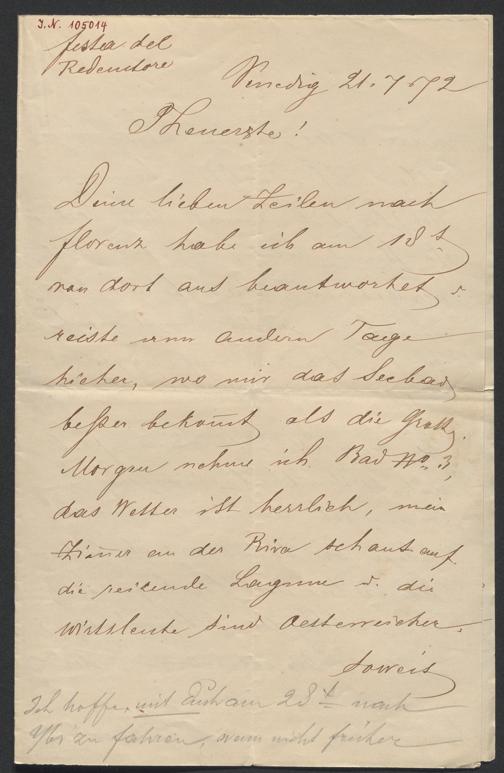 J.N. 105014
festa del
Redentore
Venedig 21.7.92
Theuerste!
Deine lieben Zeilen nach
Florenz habe ich am 18t
von dort aus beantwortet u.
reiste am andern Tage
hieher, wo mir das Seebad
beßer bekom̄t als die Grotte.
Morgen nehme ich Bad No. 3,
das Wetter ist herrlich, mein
Zim̄er an der Riva schaut auf
die reizende Lagune u. die
Wirtsleute sind Oesterreicher.
Soweit
Ich hoffe, mit am 28t nach
zu fahren, wenn nicht früher